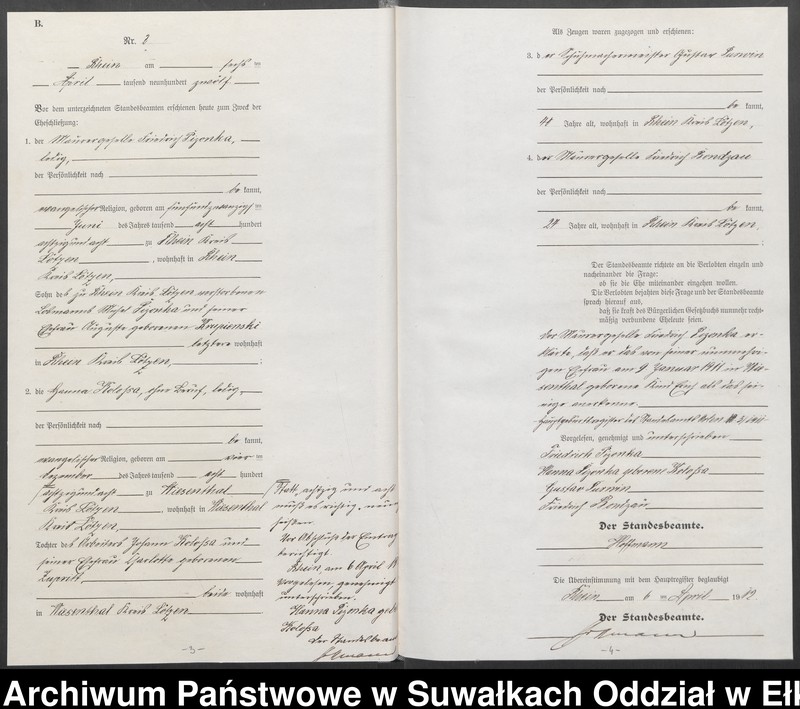 B.
Nr. 2
Rhein am sechs ten
April tausend neunhundert zwölf
Vor dem unterzeichneten Standesbeamten erschienen heute zum Zweck der
Eheschließung:
1. der Maurergeselle Friedrich
ledig,
der Persönlichkeit nach
be kannt,
evangelischer Religion, geboren am fünfundzwanzigsten
Juni des Jahres tausend acht hundert
achtzigundacht zu Rhein Kreis
Lötzen, wohnhaft in Rhein
Kreis Lötzen,
Sohn des zu Rhein Kreis Lötzen verstorbenen
und seiner
Ehefrau Auguste geborenen Krupinski
letztere wohnhaft
in Rhein Kreis Lötzen,
2. die Hanna Kolossa, ohne Beruf, ledig,
der Persönlichkeit nach
be kannt,
evangelischer Religion, geboren am vier ten
Dezember des Jahres tausend acht hundert
achtzigundacht zu Wiesenthal
Kreis Lötzen, wohnhaft in Wiesenthal
Kreis Lötzen,
Tochter des Arbeiters Johann Kolossa und
seiner Ehefrau Charlotte geborenen
beide wohnhaft
in Wiesenthal Kreis Lötzen
Statt achtzig und acht
muß es richtig neun
Vor Abschluß der Eintragung
berichtigt.
Rhein am 6 April 19
vorgelesen, genehmigt
unterschrieben.
Hanna geb
Kolossa
Der Standesbeamte
- 3 -
Als Zeugen waren zugezogen und erschienen:
3. der Schuhmachermeister Gustav
der Persönlichkeit nach
be kannt,
Jahre alt, wohnhaft in Rhein Kreis Lötzen,
4. der Maurergeselle Friedrich
der Persönlichkeit nach
be kannt,
Jahre alt, wohnhaft in Rhein Kreis Lötzen,
Der Standesbeamte richtete an die Verlobten einzeln und
nacheinander die Frage:
ob sie die Ehe miteinander eingehen wollen.
Die Verlobten bejahten diese Frage und der Standesbeamte
sprach hierauf aus,
daß sie kraft des Bürgerlichen Gesetzbuchs nunmehr recht-
mäßig verbundene Eheleute seien.
Der Maurergeselle Friedrich er-
klärte, daß er das von seiner nunmehri-
gen Ehefrau am 9 Januar 1911 in Wie-
senthal geborene Kind als das sei-
nige anerkenne.
Vorgelesen, genehmigt und unterschrieben
Friedrich
Hanna geborene Kolossa
Gustav
Friedrich
Der Standesbeamte.
Hoffmann
Die Übereinstimmung mit dem Hauptregister beglaubigt
Rhein am 6 ten April 1912
Der Standesbeamte.
- 4 -
Archiwum Państwowe w Suwałkach Oddział w Ełk